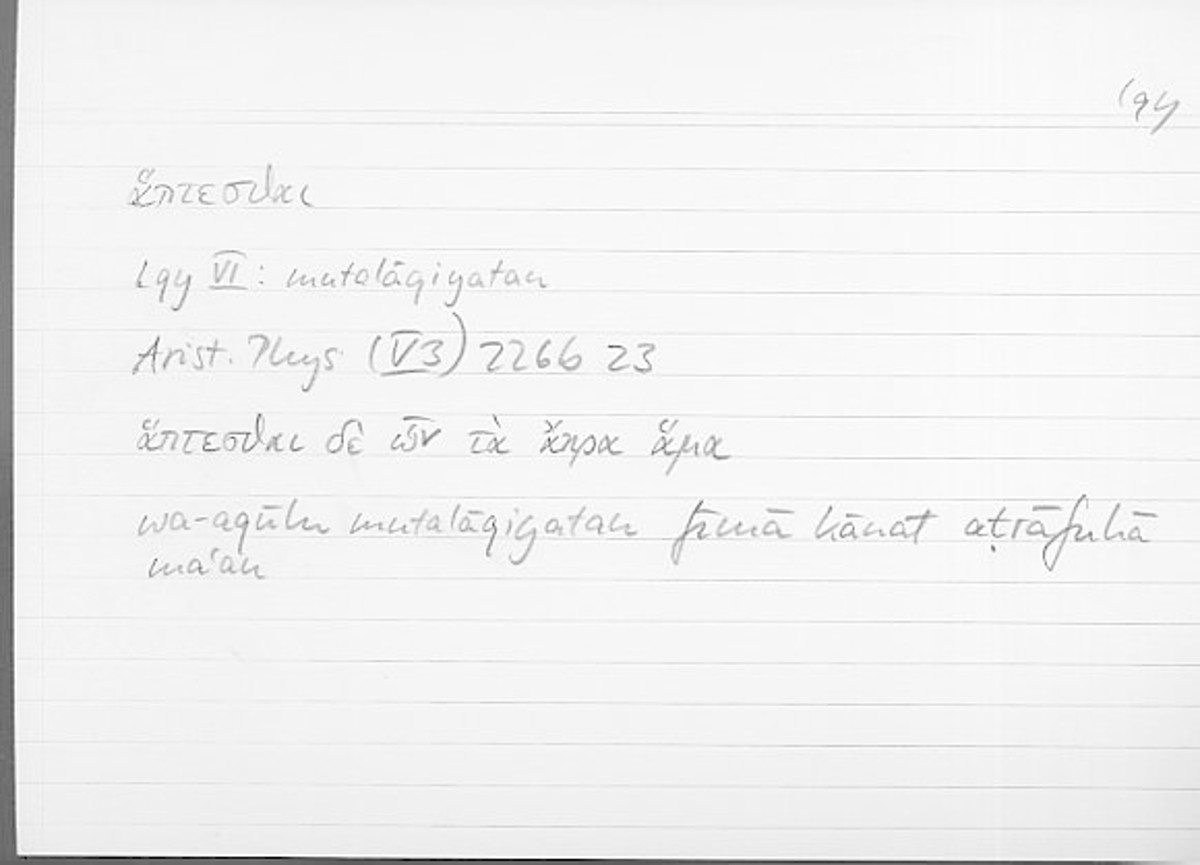 lqy
ἅπτεσθαι
lqy VI: mutalāqiyatan
Arist. Phys (V3) 226b 23
ἅπτεσθαι δὲ ὧν τὰ ἄκρα ἅμα
wa-aqūlu mutalāqiyatan fīmā kānat aṭrāfuhā
maʿan